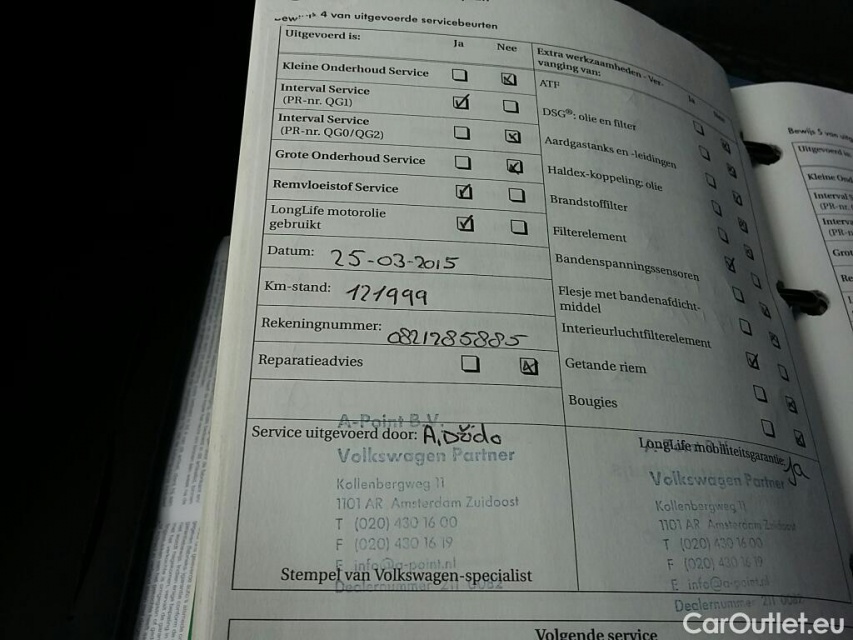 4 van uitgevoerde servicebeurten
Uitgevoerd is: Ja Nee
Kleine Onderhoud Service
Interval Service
(PR-nr. QG1)
Interval Service
(PR-nr. QG0/QG2)
Grote Onderhoud Service
Remvloeistof Service
LongLife motorolie
gebruikt
Datum: 25-03-2015
Km-stand: 121999
Rekeningnummer: 0821285885
Reparatieadvies
Extra werkzaamheden - Ver-
vanging van: Ja Nee
ATF
DSG®: olie en filter
Aardgastanks en -leidingen
Haldex-koppeling: olie
Brandstoffilter
Filterelement
Bandenspanningssensoren
Flesje met bandenafdicht-
middel
Interieurluchtfilterelement
Getande riem
Bougies
A-Point B.V.
Service uitgevoerd door:
Volkswagen Partner
Kollenbergweg 11
1101 AR Amsterdam Zuidoost
T (020) 430 16 00
F (020) 430 16 19
E info@a-point.nl
Stempel van Volkswagen-specialist
Dealernummer 211 0082
LongLife mobiliteitsgarantie: Ja
Volkswagen Partner
Kollenbergweg 11
1101 AR Amsterdam Zuidoost
T (020) 430 16 00
F (020) 430 16 19
E info@a-point.nl
Dealernummer 211 0082
Volgende service
Bewijs 5 van
Uitgevoerd is:
Kleine
Interval
(PR-n
Interva
(PR-n
Grot
CarOutlet.eu